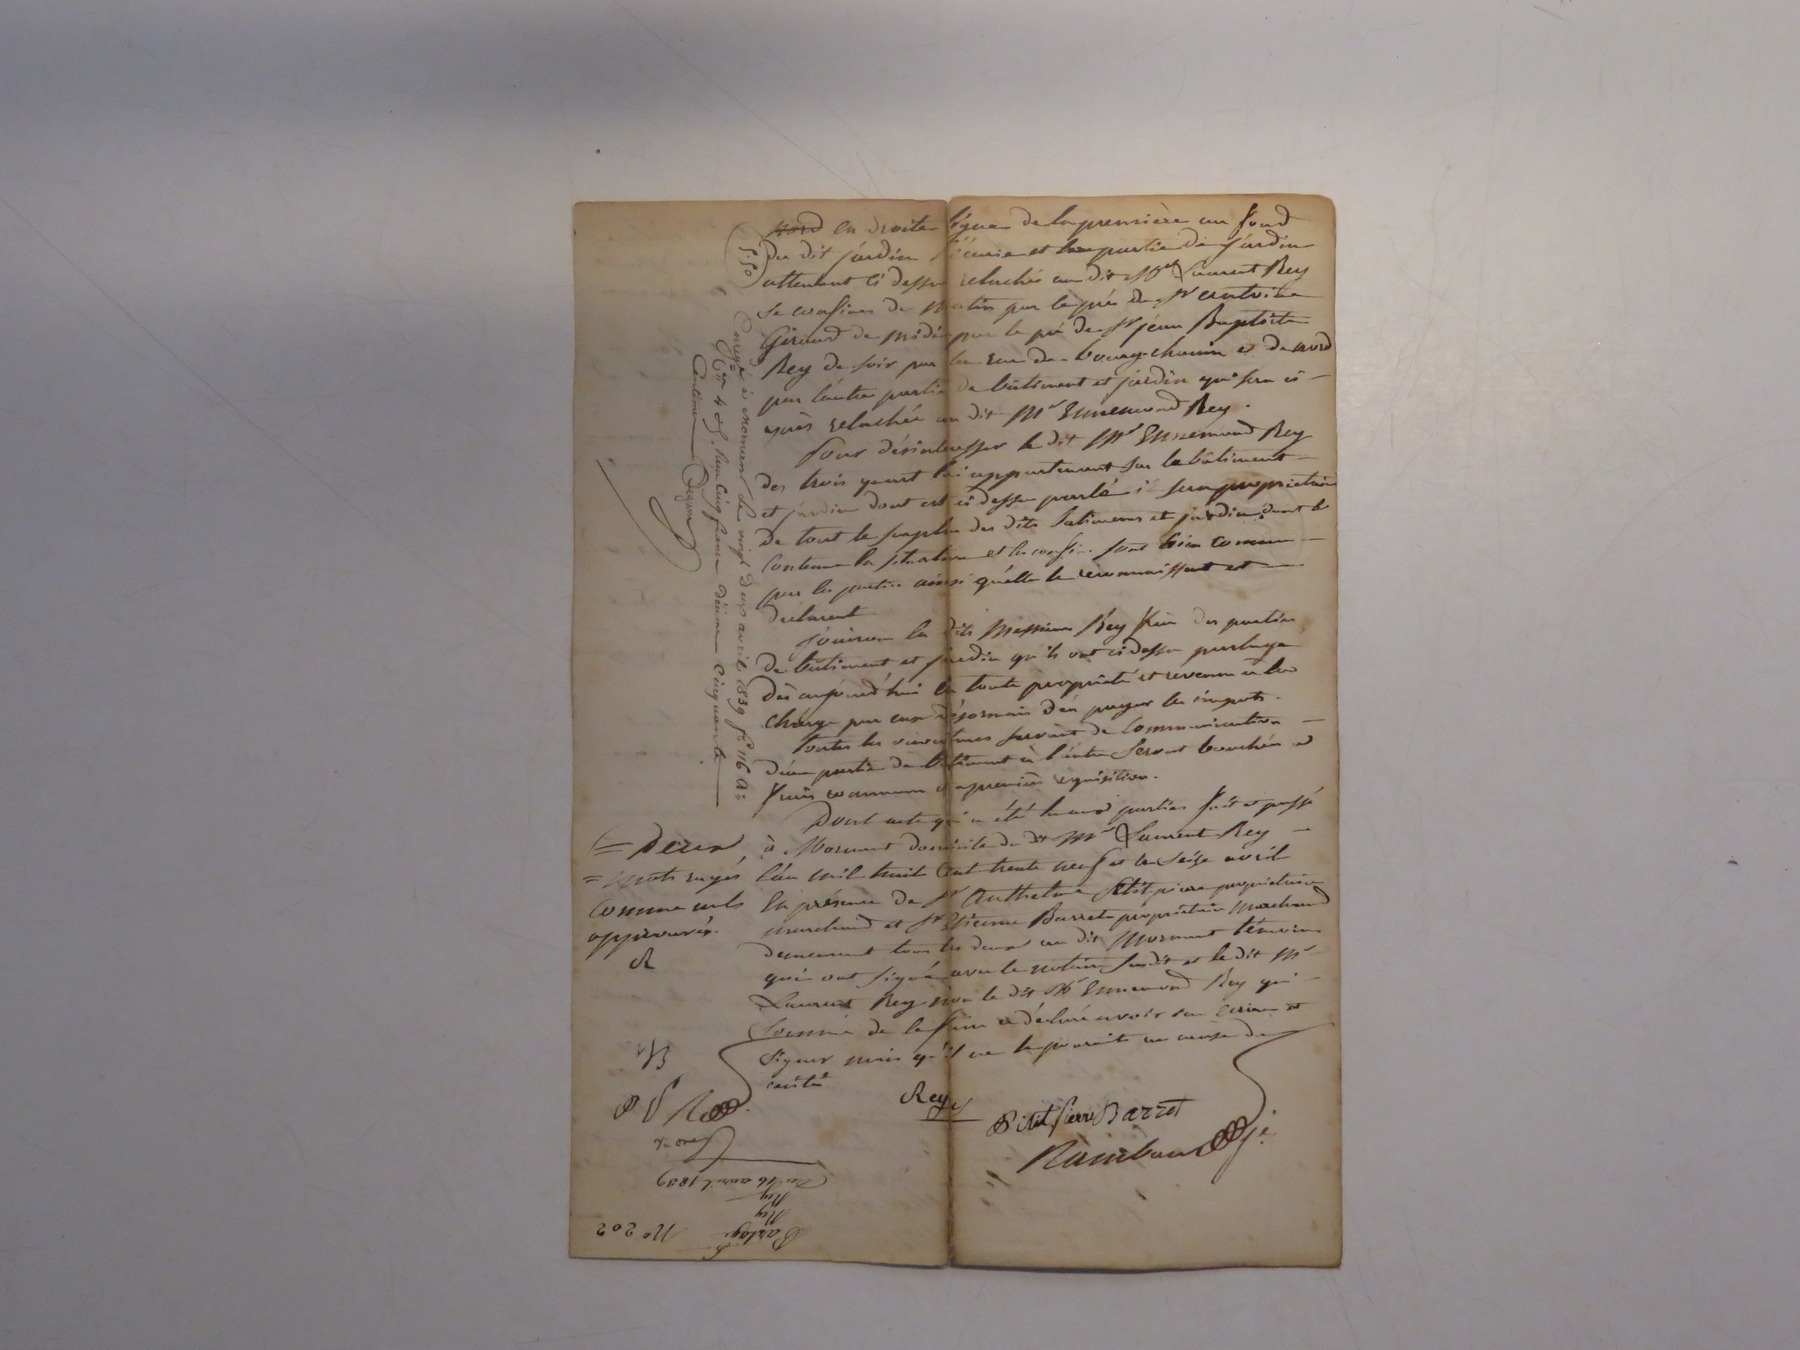 nord en droite ligne de la première au fond
du dit jardin l'écurie et la partie de jardin
attenant ci dessus relachés au dit Mr Laurent Rey
se confinent de matin par le pré de Sr Antoine
Giraud de midi par le pré de Sr jean Baptiste
Rey de soir par la rue de bourg-chanin et de nord
par l'autre partie de bâtiment et jardin qui sera ci-
après relachée au dit Mr Ennemond Rey.
Pour désintéresser le dit Mr Ennemond Rey
des trois quart lui appartenant sur le bâtiment
et jardin dont est ci dessus parlé il sera propriétaire
de tout le surplus des dits batiments et jardin dont la
contenue la situation et les confins sont bien connus
par les parties ainsi qu'elles le reconnaissent et
déclarent
Jouiront les dits Messieurs Rey frères des parties
de bâtiment et jardin qu'ils ont ci dessus partagé
dès aujourd'hui en toute propriété et revenu à la
charge par eux désormais d'en payer les impots.
Toutes les ouvertures servant de communication
d'une partie de bâtiment à l'autre seront bouchées à
frais communs à première réquisition.
Dont acte qui a été lu aux parties fait et passé
à Mornant domicile du dt Mr Laurent Rey
l'an mil huit cent trente neuf et le seize avril
En présence de Sr Anthelme Petit-pierre propriétaire
marchand et Sr Etienne Barret propriétaire marchand
demeurant tous les deux au dit Mornant témoins
qui ont signé avec le notaire susdit et le dit Mr
Laurent Rey non le dit Mr Ennemond Rey qui
sommé de le faire a déclaré avoir su écrire et
signer mais qu'il ne le pouvait à cause de
cécité
Rey
Petit pierre Barret
Rambaud
= Deux
= mots rayés
comme nuls
approuvés.
R
Enregé à Mornant le vingt deux avril 1839 fo 116 Ro
Cen 4 & 5. Reçu cinq francs décime cinquante
centimes
5.50
No 202
Partage
Rey
Rey
Du 16 avril 1839